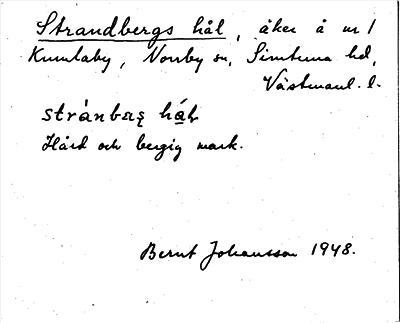 Strandbergs hål, åker å nr 1
Kumlaby, Norrby sn, Simtuna hd,
Västmanl. l.
Hård och bergig mark.
Bernt Johansson 1948.